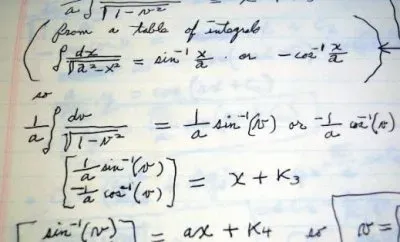 a ∫ √1-v²
(from a table of integrals
∫ dx/√a²-x² = sin⁻¹ x/a · or -cos⁻¹ x/a)
so
1/a ∫ dv/√1-v² = 1/a sin⁻¹(v) or -1/a cos⁻¹(v)
[1/a sin⁻¹(v)
-1/a cos⁻¹(v)] = x + K₃
[sin⁻¹(v)] = ax + K₄ so v =